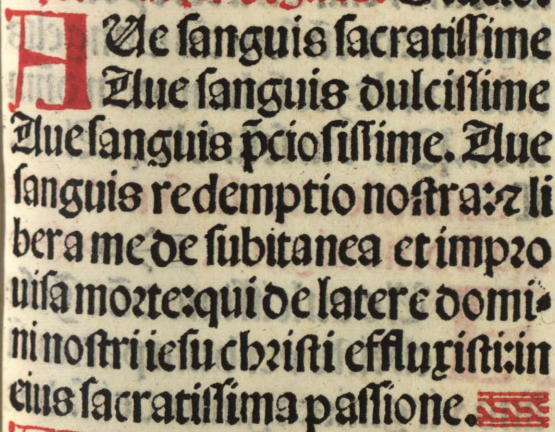 AUe sanguis sacratissime
Aue sanguis dulcissime
Aue sanguis p̄ciosissime. Aue
sanguis redemptio nostra: ⁊ li
bera me de subitanea et impro
uisa morte: qui de latere domi-
ni nostri iesu christi effluxisti: in
eius sacratissima passione.